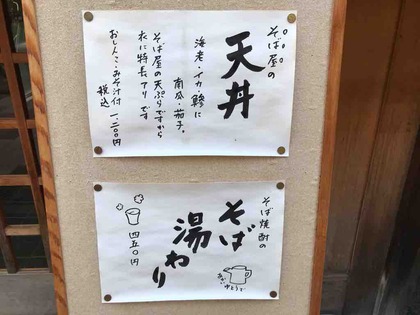 そば屋の
天丼
海老・イカ・鯵に
南瓜・茄子。
そば屋の天ぷらですから
衣に特長アリです
おしんこ・みそ汁付 一、二〇〇円
税込
そば焼酎の
そば
湯わり
四五〇円